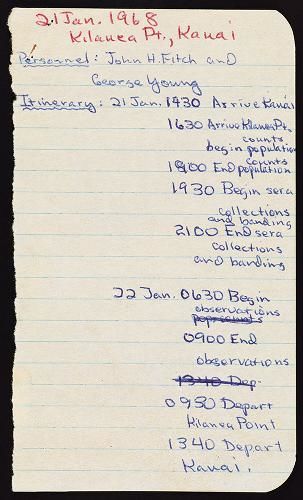 21 Jan. 1968
Kilauea Pt., Kauai
Personnel: John H. Fitch and
George Young
Itinerary: 21 Jan. 1430 Arrive Kauai
1630 Arrive Kilauea Pt.
begin population counts
1900 End population counts
1930 Begin sera
collections
and banding
2100 End sera
collections
and banding
22 Jan. 0630 Begin
observations
0900 End
observations
1340 Dep.
0930 Depart
Kilauea Point
1340 Depart
Kauai.